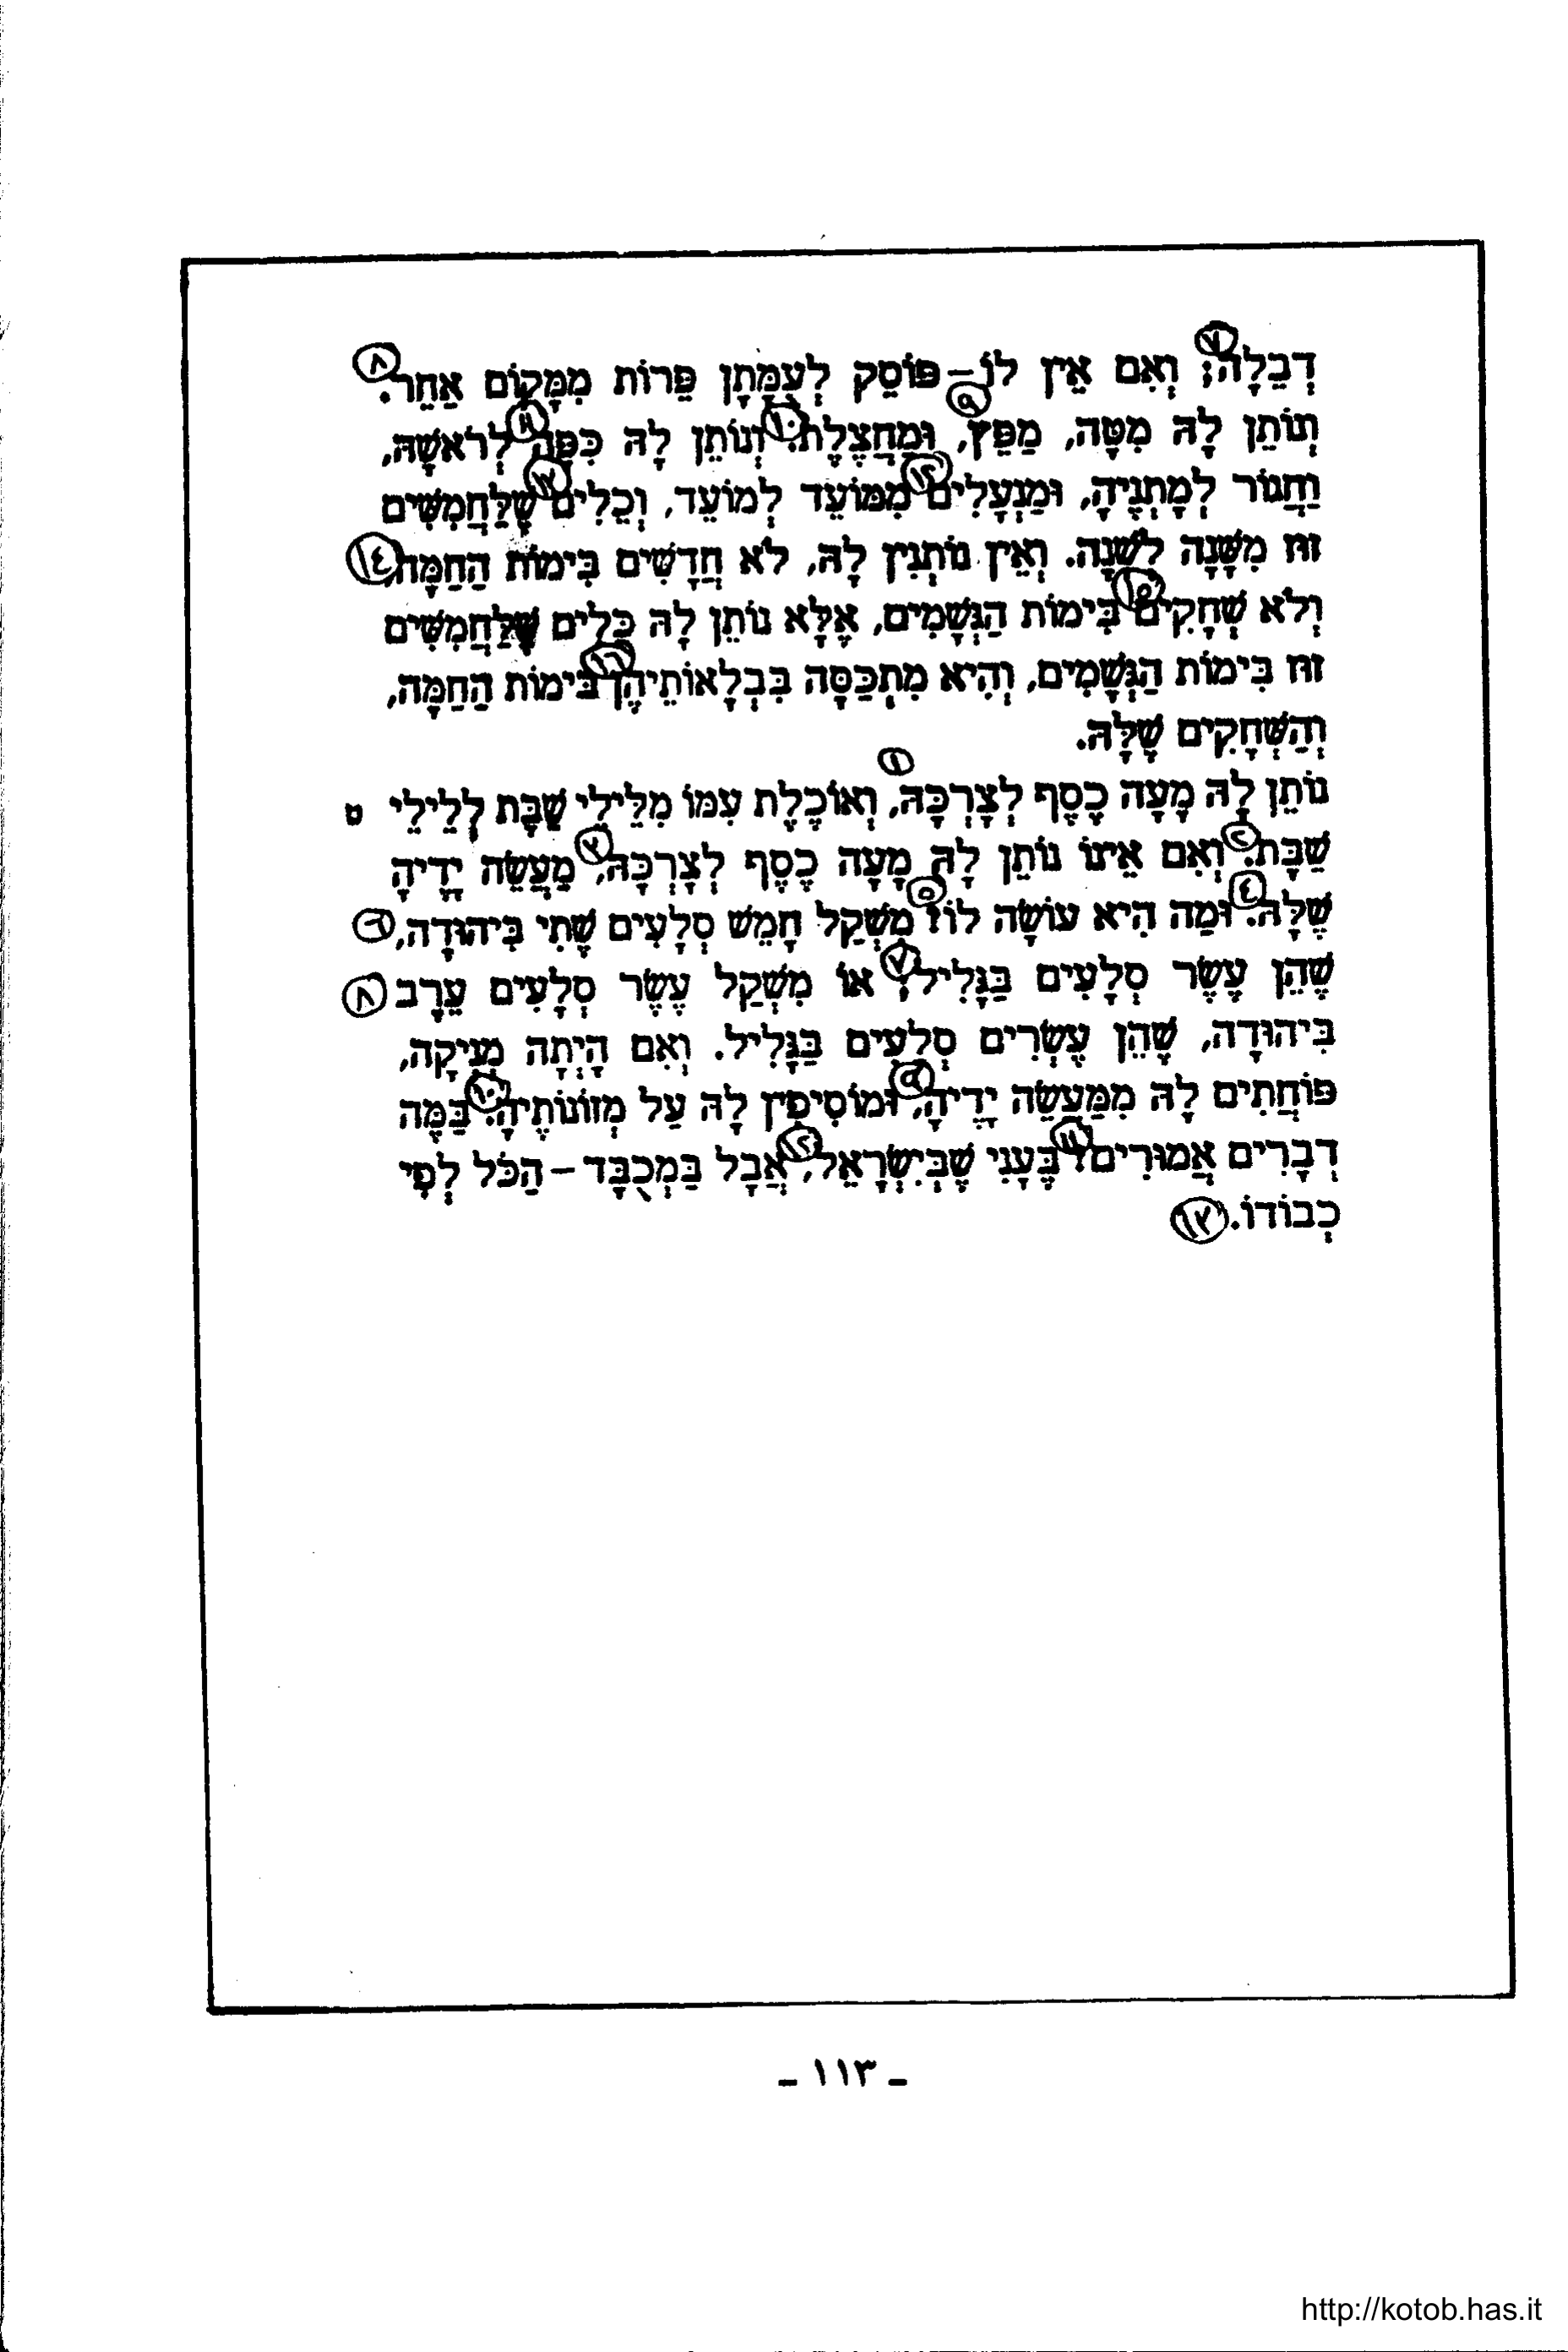 דְבֵלָה; וְאִם אֵין לוֹ – פּוֹסֵק לְעֻמָּתָן פֵּרוֹת מִמָּקוֹם אַחֵר. ⑦ ⑧
וְנוֹתֵן לָהּ מִטָּה, מַפֵּץ, וּמַחֲצֶלֶת. וְנוֹתֵן לָהּ כִּפָּה לְרֹאשָׁהּ, ⑨ ⑩ ⑪
וַחֲגוֹר לְמָתְנֶיהָ, וּמִנְעָלִים מִמּוֹעֵד לְמוֹעֵד, וְכֵלִים שֶׁלַּחֲמִשִּׁים ⑫ ⑬
זוּז מִשָּׁנָה לְשָׁנָה. וְאֵין נוֹתְנִין לָהּ, לֹא חֲדָשִׁים בִּימוֹת הַחַמָּה, ⑭
וְלֹא שְׁחָקִים בִּימוֹת הַגְּשָׁמִים, אֶלָּא נוֹתֵן לָהּ כֵּלִים שֶׁלַּחֲמִשִּׁים ⑮
זוּז בִּימוֹת הַגְּשָׁמִים, וְהִיא מִתְכַּסָּה בִּבְלָאוֹתֵיהֶן בִּימוֹת הַחַמָּה, ⑯
וְהַשְּׁחָקִים שֶׁלָּהּ.
ט נוֹתֵן לָהּ מָעָה כֶסֶף לְצָרְכָּהּ, וְאוֹכֶלֶת עִמּוֹ מִלֵּילֵי שַׁבָּת לְלֵילֵי ①
שַׁבָּת. וְאִם אֵינוֹ נוֹתֵן לָהּ מָעָה כֶסֶף לְצָרְכָּהּ, מַעֲשֵׂה יָדֶיהָ ② ③
שֶׁלָּהּ. וּמַה הִיא עוֹשָׂה לוֹ? מִשְׁקַל חָמֵשׁ סְלָעִים שְׁתִי בִּיהוּדָה, ④ ⑤ ⑥
שֶׁהֵן עֶשֶׂר סְלָעִים בַּגָּלִיל; אוֹ מִשְׁקַל עֶשֶׂר סְלָעִים עֵרֶב ⑦ ⑧
בִּיהוּדָה, שֶׁהֵן עֶשְׂרִים סְלָעִים בַּגָּלִיל. וְאִם הָיְתָה מְנִיקָה,
פּוֹחֲתִים לָהּ מִמַּעֲשֵׂה יָדֶיהָ, וּמוֹסִיפִין לָהּ עַל מְזוֹנוֹתֶיהָ. בַּמֶּה ⑨ ⑩
דְבָרִים אֲמוּרִים? בֶּעָנִי שֶׁבְּיִשְׂרָאֵל, אֲבָל בַּמְכֻבָּד – הַכֹּל לְפִי ⑪ ⑫
כְבוֹדוֹ. ⑬
- ١١٣ -
http://kotob.has.it